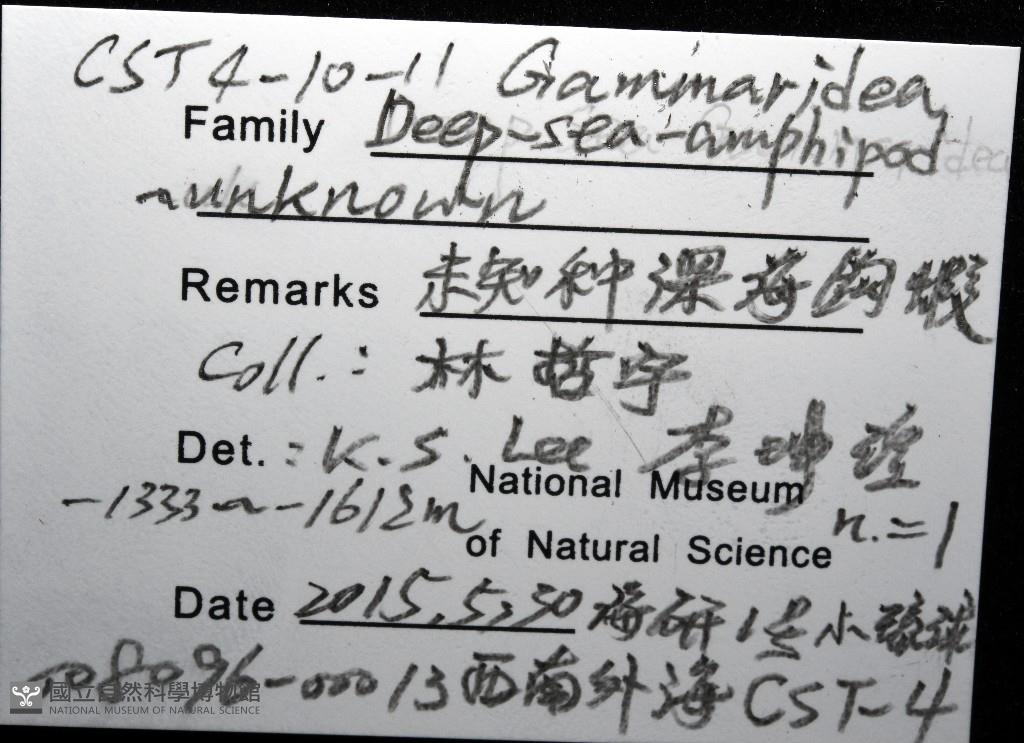 CST 4-10-11 Gammaridea
Family Deep-sea-amphipod
~unknown
Remarks 未知种深海鈎蝦
Coll.: 林哲宇
Det.: K.S. Lee 李坤瑄
National Museum
-1333~-1612m n.=1
of Natural Science
Date 2015,5,30 海研1号小琉球
-00013 西南外海 CST-4
國立自然科學博物館
NATIONAL MUSEUM OF NATURAL SCIENCE